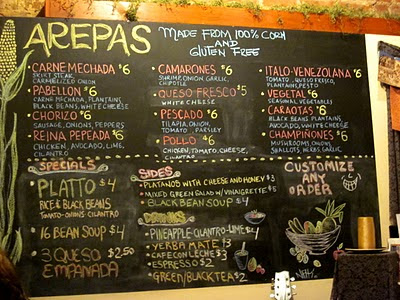 AREPAS
MADE FROM 100% CORN
AND
GLUTEN FREE
• CARNE MECHADA $6
SKIRT STEAK,
CARMELIZED ONION
• PABELLON $6
CARNE MECHADA, PLANTAINS,
BLACK BEANS, WHITE CHEESE
• CHORIZO $6
SAUSAGE, ONIONS, PEPPERS
• REINA PEPEADA $6
CHICKEN, AVOCADO, LIME,
CILANTRO
• CAMARONES $6
SHRIMP, ONION, GARLIC,
CHIPOTLE
• QUESO FRESCO $5
WHITE CHEESE
• PESCADO $6
TILAPIA, ONION,
TOMATO, PARSLEY
• POLLO $6
CHICKEN, TOMATO, CHEESE,
CILANTRO
• ITALO-VENEZOLANA $6
TOMATO, QUESO FRESCO,
PLANTAIN, PESTO
• VEGETAL $6
SEASONAL VEGETABLES
• CARAOTAS $6
BLACK BEANS, PLANTAINS
AVOCADO, WHITE CHEESE
• CHAMPINONES $5
MUSHROOMS, ONIONS
SHALLOTS, HERBS, GARLIC
SPECIALS
• PLATTO $4
RICE & BLACK BEANS
TOMATO-ONIONS CILANTRO
• 16 BEAN SOUP $4
• 3 QUESO $2.50
EMPANADA
SIDES
• PLATANOS WITH CHEESE AND HONEY $3
• MIXED GREEN SALAD W/ VINAIGRETTE $3
• BLACK BEAN SOUP $4
DRINKS
• PINEAPPLE CILANTRO-LIME $4
• YERBA MATE $3
• CAFE CON LECHE $3
• ESPRESSO $2
• GREEN/BLACK TEA $2
CUSTOMIZE
ANY
ORDER